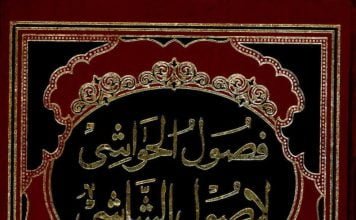 فصول الحواشي
لاصول الشاشي